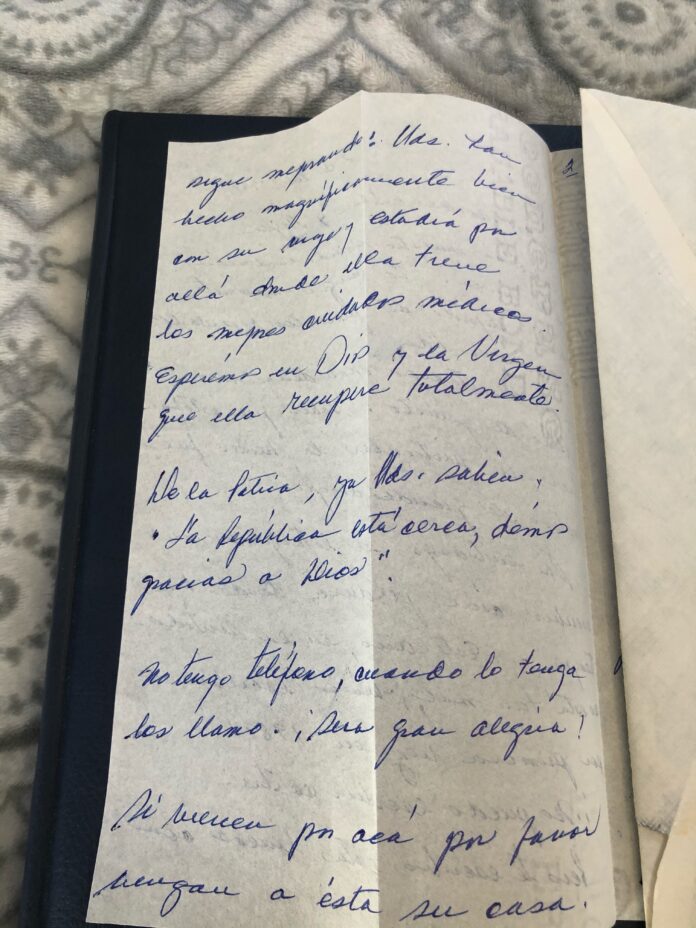 sigue mejorando! Uds. han
hecho magníficamente bien
con su viaje y estadía por
allá donde ella tiene
los mejores cuidados médicos.
Esperemos en Dios y la Virgen
que ella recupere totalmente.
De la Patria, ya Uds. saben.
"La República está cerca, démos
gracias a Dios".
No tengo teléfono, cuando lo tenga
los llamo. ¡Sera gran alegria!
Si vienen por acá por favor
vengan a ésta su casa.
2